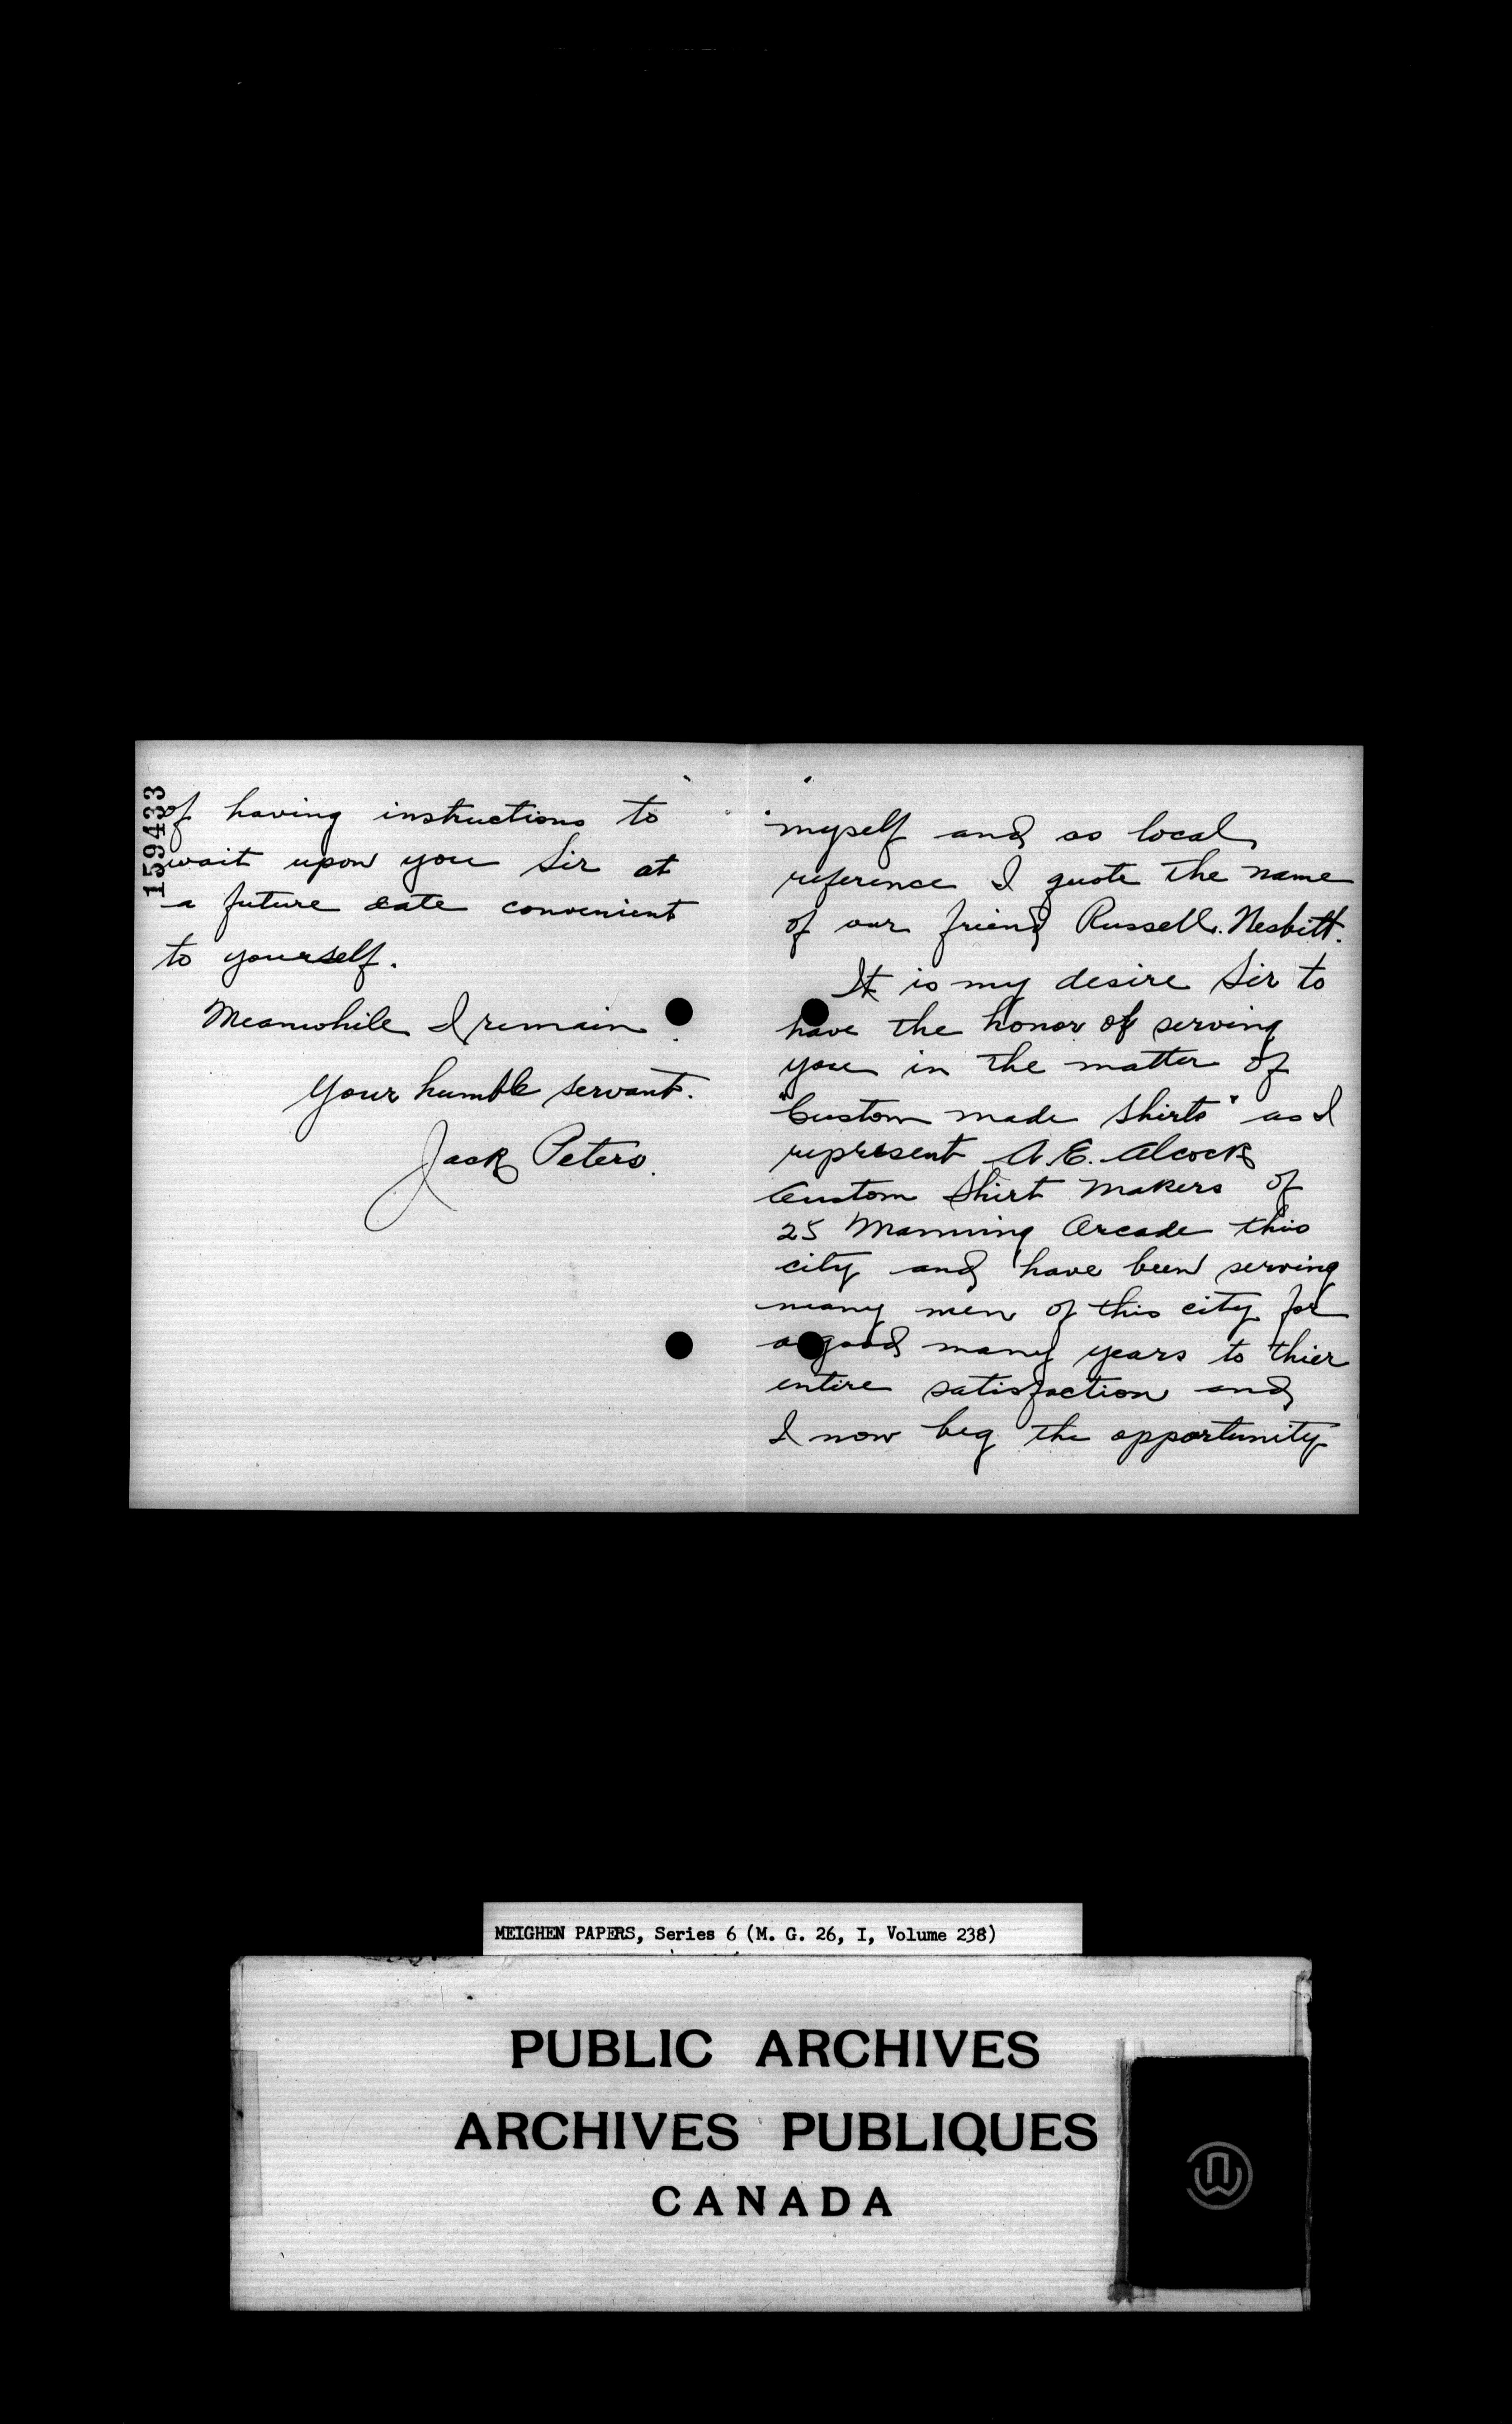 159433
of having instructions to
wait upon you Sir at
a future date convenient
to yourself.
Meanwhile I remain
Your humble servant.
Jack Peters.
myself and so local
reference I quote the name
of our friend Russell. Nesbitt.
It is my desire Sir to
have the honor of serving
you in the matter of
"Custom made Shirts" as I
represent A. E. Alcock
Custom Shirt Makers of
25 Manning Arcade this
city and have been serving
many men of this city for
a good many years to thier
entire satisfaction and
I now beg the opportunity
MEIGHEN PAPERS, Series 6 (M. G. 26, I, Volume 238)
PUBLIC ARCHIVES
ARCHIVES PUBLIQUES
CANADA